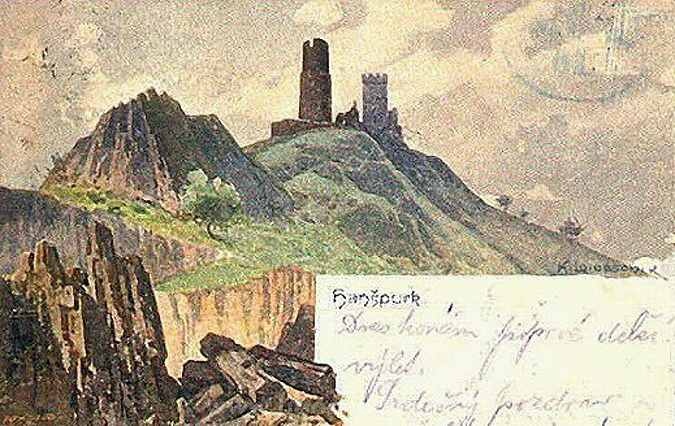 Hanšpurk
Dnes konám poprvé delší
výlet.
Srdečný pozdrav